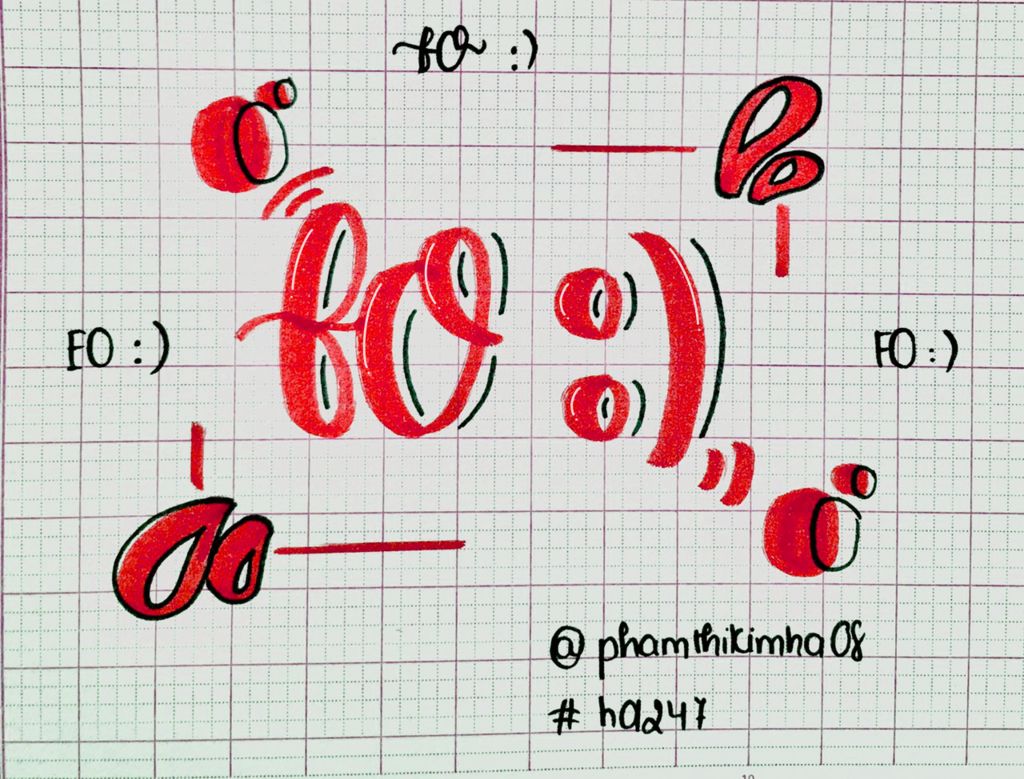 fO :)
fO :)
FO :)
FO :)
@phamthikimha08
#ha247